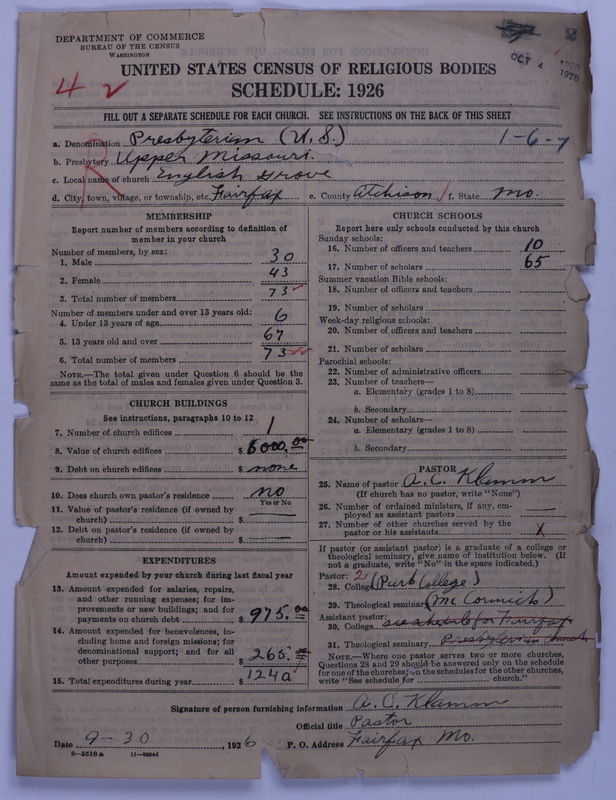 DEPARTMENT OF COMMERCE
BUREAU OF THE CENSUS
WASHINGTON
OCT 4 1926
UNITED STATES CENSUS OF RELIGIOUS BODIES
SCHEDULE: 1926
42
FILL OUT A SEPARATE SCHEDULE FOR EACH CHURCH. SEE INSTRUCTIONS ON THE BACK OF THIS SHEET
R
a. Denomination Presbyterian (U.S.) 1-6-7
b. Presbytery Upper Missouri.
c. Local name of church English Grove
d. City, town, village, or township, etc. Fairfax e. County Atchison f. State Mo.
MEMBERSHIP
Report number of members according to definition of member in your church
Number of members, by sex:
1. Male 30
2. Female 43
3. Total number of members 73
Number of members under and over 13 years old:
4. Under 13 years of age 6
5. 13 years old and over 67
6. Total number of members 73
NOTE.—The total given under Question 6 should be the same as the total of males and females given under Question 3.
CHURCH BUILDINGS
See instructions, paragraphs 10 to 12
7. Number of church edifices 1
8. Value of church edifices $ 6000.00
9. Debt on church edifices $ none
10. Does church own pastor's residence no
Yes or No
11. Value of pastor's residence (if owned by church) $ —
12. Debt on pastor's residence (if owned by church) $ —
EXPENDITURES
Amount expended by your church during last fiscal year
13. Amount expended for salaries, repairs, and other running expenses; for improvements or new buildings; and for payments on church debt $ 975.00
14. Amount expended for benevolences, including home and foreign missions; for denominational support; and for all other purposes $ 265.00
15. Total expenditures during year $ 1240
CHURCH SCHOOLS
Report here only schools conducted by this church
Sunday schools:
16. Number of officers and teachers 10
17. Number of scholars 65
Summer vacation Bible schools:
18. Number of officers and teachers
19. Number of scholars
Week-day religious schools:
20. Number of officers and teachers
21. Number of scholars
Parochial schools:
22. Number of administrative officers
23. Number of teachers—
a. Elementary (grades 1 to 8)
b. Secondary
24. Number of scholars—
a. Elementary (grades 1 to 8)
b. Secondary
PASTOR
25. Name of pastor A. C. Klamm
(If church has no pastor, write "None")
26. Number of ordained ministers, if any, employed as assistant pastors —
27. Number of other churches served by the pastor or his assistants
If pastor (or assistant pastor) is a graduate of a college or theological seminary, give name of institution below. (If not a graduate, write "No" in the space indicated.)
Pastor: 2
28. College (Park College)
29. Theological seminary (McCormick)
Assistant pastor:
30. College see schedule for Fairfax
31. Theological seminary Presbyterian Church
NOTE.—Where one pastor serves two or more churches, Questions 28 and 29 should be answered only on the schedule for one of the churches; on the schedules for the other churches, write "See schedule for church."
Signature of person furnishing information A. C. Klamm
Official title Pastor
Date 9-30, 1926 P. O. Address Fairfax Mo.
8-5518a